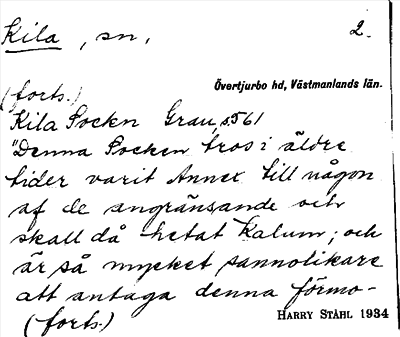 Kila, sn, 2.
Övertjurbo hd, Västmanlands län.
(forts.)
Kila Socken Grau, s.561
"Denna Socken tros i äldre
tider varit Annex till någon
af de angränsande och
skall då hetat Kalum; och
är så mycket sannolikare
att antaga denna förmo-
(forts.) HARRY STÅHL 1934